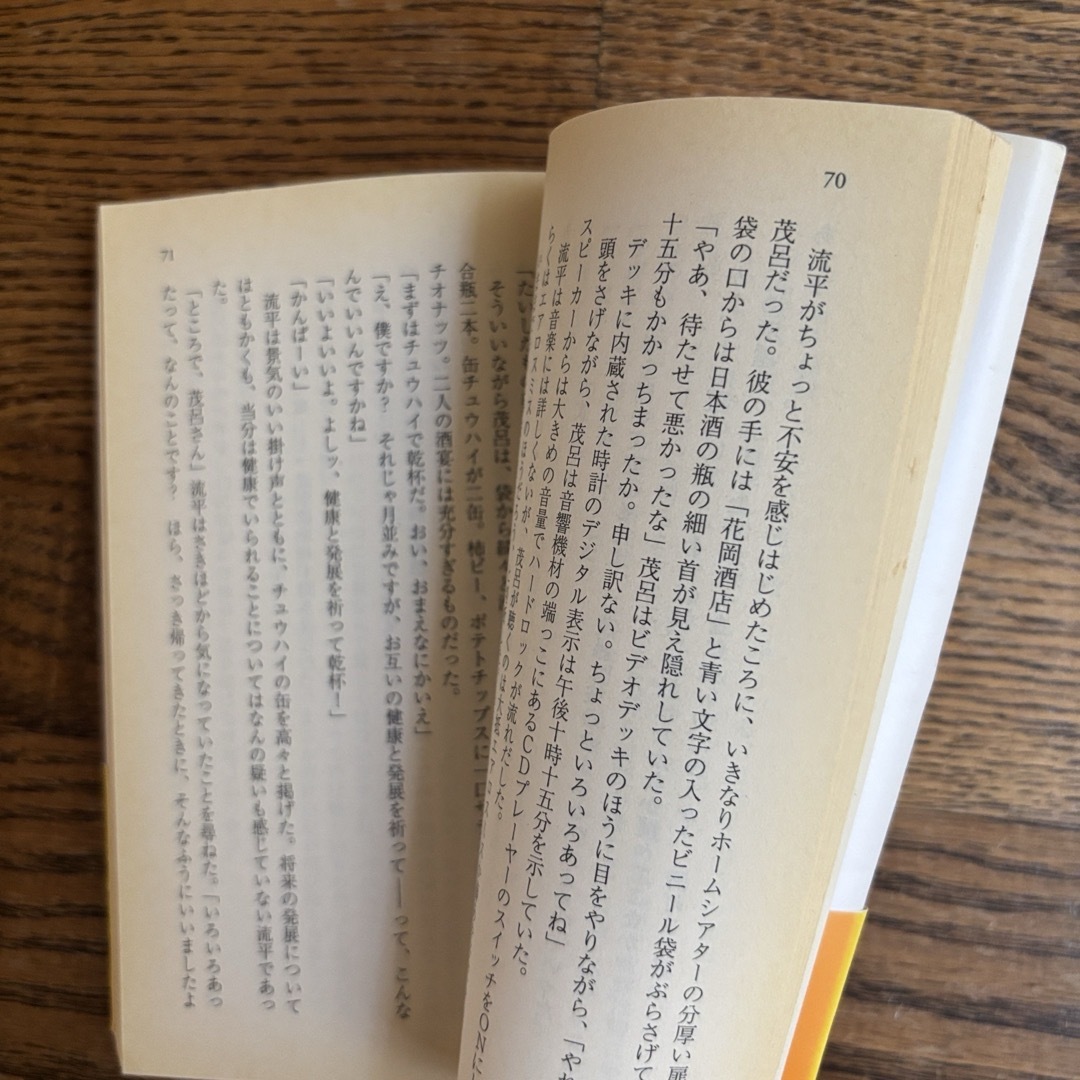 70
流平がちょっと不安を感じはじめたころに、いきなりホームシアターの分厚い扉
茂呂だった。彼の手には「花岡酒店」と青い文字の入ったビニール袋がぶらさげて
袋の口からは日本酒の瓶の細い首が見え隠れしていた。
「やあ、待たせて悪かったな」茂呂はビデオデッキのほうに目をやりながら、「やれ
十五分もかかっちまったか。申し訳ない。ちょっといろいろあってね」
デッキに内蔵された時計のデジタル表示は午後十時十五分を示していた。
頭をさげながら、茂呂は音響機材の端っこにあるCDプレーヤーのスイッチをONに
スピーカーからは大きめの音量でハードロックが流れだした。
流平は音楽には詳しくないが、茂呂が聴くのは大抵エアロス
らくはエアロスミスのほうだ
71
「たいした
そういいながら茂呂は、袋から
合瓶二本。缶チュウハイが二缶。柿ピー、ポテトチップスに
チオナッツ。二人の酒宴には充分すぎるものだった。
「まずはチュウハイで乾杯だ。おい、おまえなにかいえ」
「え、僕ですか？　それじゃ月並みですが、お互いの健康と発展を祈って――って、こんな
んでいいんですかね」
「いいよいいよ。よしッ、健康と発展を祈って乾杯！」
「かんぱーい」
流平は景気のいい掛け声とともに、チュウハイの缶を高々と掲げた。将来の発展について
ほともかくも、当分は健康でいられることについてはなんの疑いも感じていない流平であっ
た。
「ところで、茂呂さん」流平はさきほどから気になっていたことを尋ねた。「いろいろあっ
たって、なんのことです？　ほら、さっき帰ってきたときに、そんなふうにいいましたよ